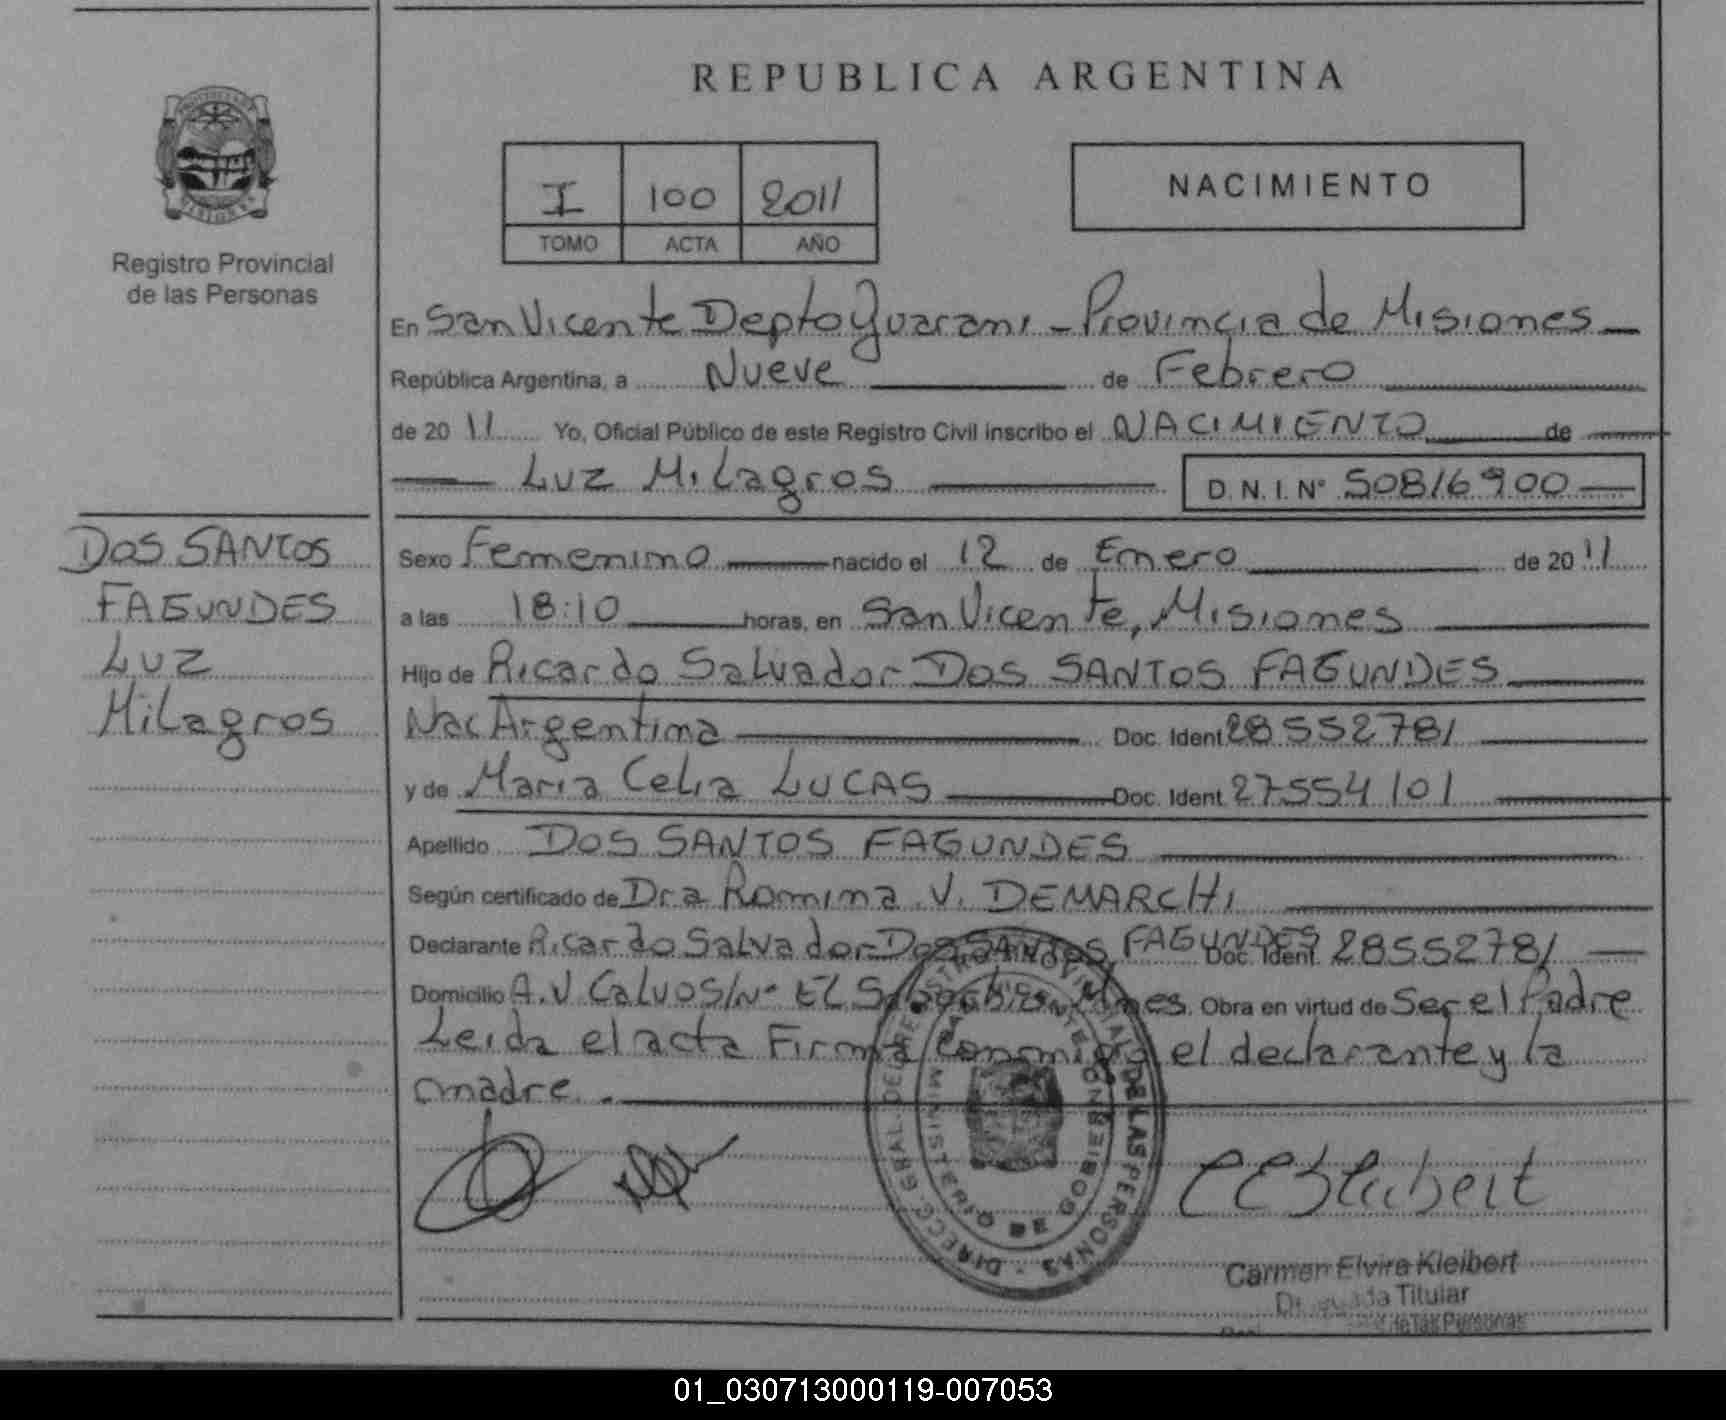 REPUBLICA ARGENTINA
PROVINCIA DE
MISIONES
Registro Provincial
de las Personas
I 100 2011
TOMO ACTA AÑO
NACIMIENTO
En San Vicente Depto Guarani - Provincia de Misiones
República Argentina, a Nueve de Febrero
de 2011 Yo, Oficial Público de este Registro Civil inscribo el NACIMIENTO de
Luz Milagros D.N.I. N° 50816900
DOS SANTOS
FAGUNDES
Luz
Milagros
Sexo Femenino nacido el 12 de Enero de 2011
a las 18:10 horas, en San Vicente, Misiones
Hijo de Ricardo Salvador DOS SANTOS FAGUNDES
Nac Argentina Doc. Ident. 28552781
y de Maria Celia LUCAS Doc. Ident. 27554101
Apellido DOS SANTOS FAGUNDES
Según certificado de Dra Romina V. DEMARCHI
Declarante Ricardo Salvador DOS SANTOS FAGUNDES Doc. Ident. 28552781
Domicilio A.V Calvo S/N° EL Mnes. Obra en virtud de Ser el Padre
Leida el acta Firma conmigo el declarante y la
madre.
DIRECC. GRAL. DEL REGISTRO PROVINCIAL DE LAS PERSONAS
MINISTERIO DE GOBIERNO
SAN VICENTE
Carmen Elvira Kleibert
Titular
de las Personas
01_030713000119-007053